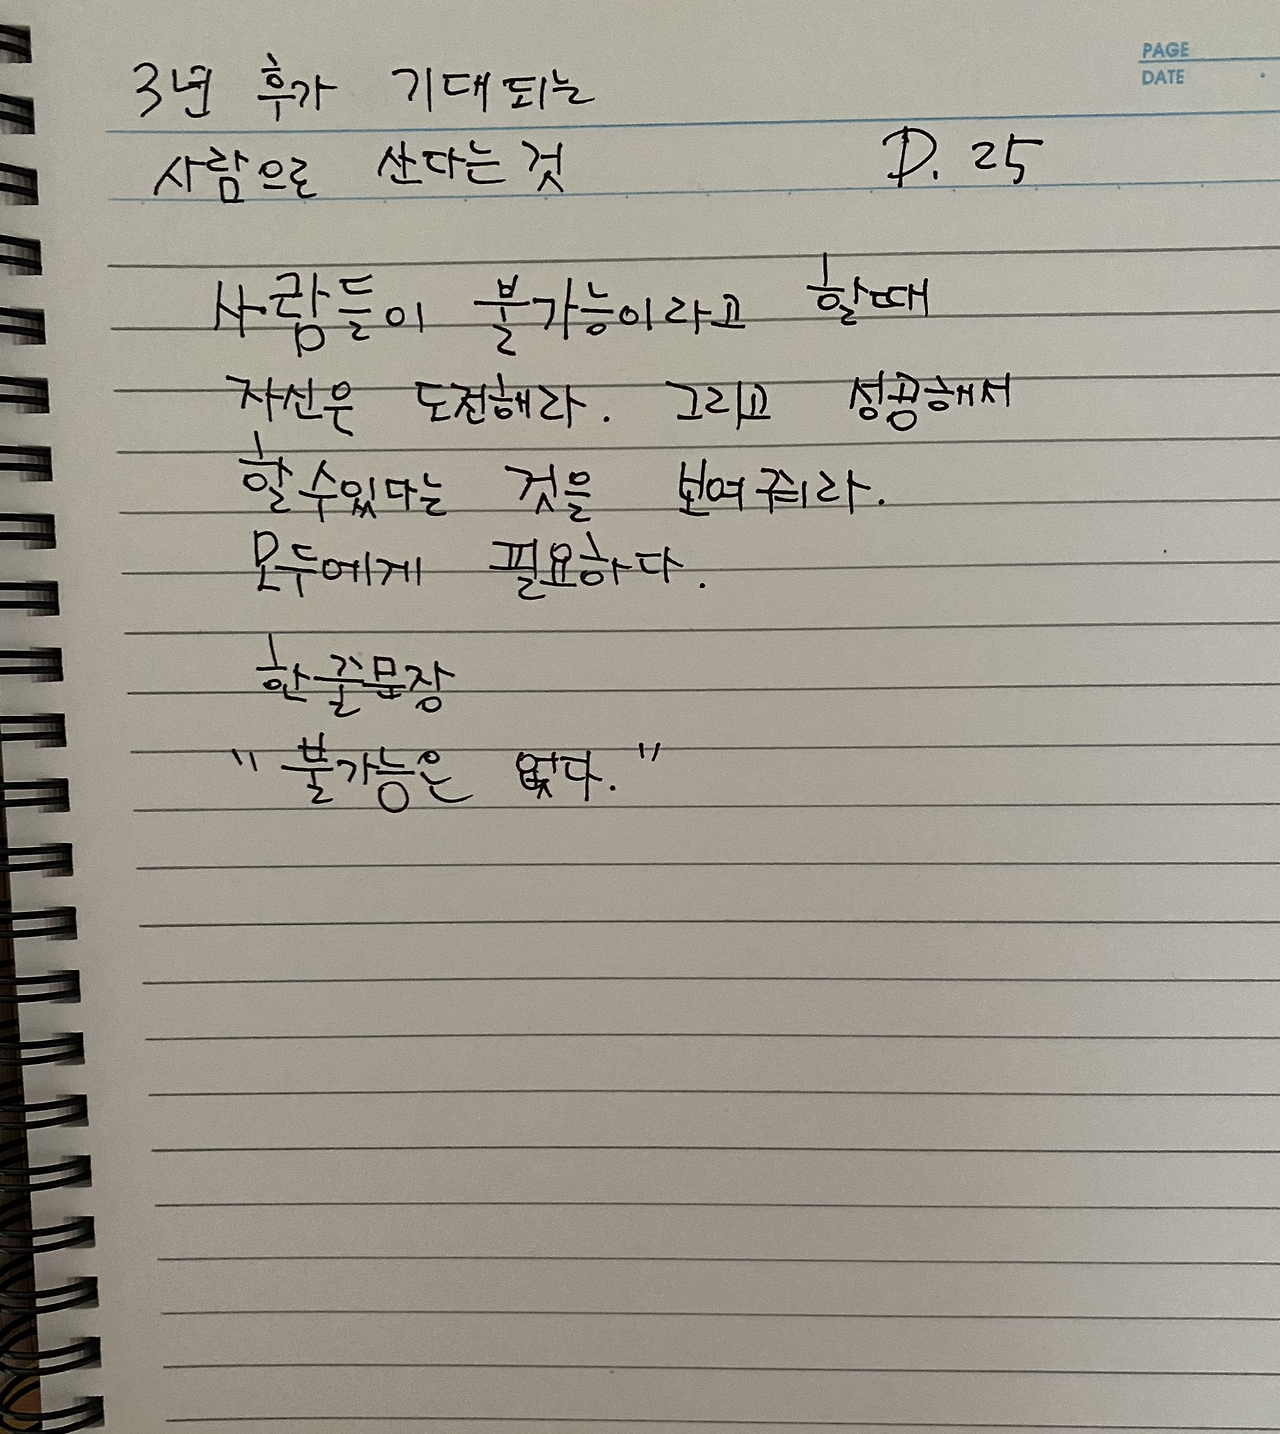 PAGE
DATE
3년 후가 기대되는
사람으로 산다는것 P. 25
사람들이 불가능이라고 할때
자신은 도전해라. 그리고 성공해서
할수있다는 것을 보여줘라.
모두에게 필요하다.
한줄문장
"불가능은 없다."